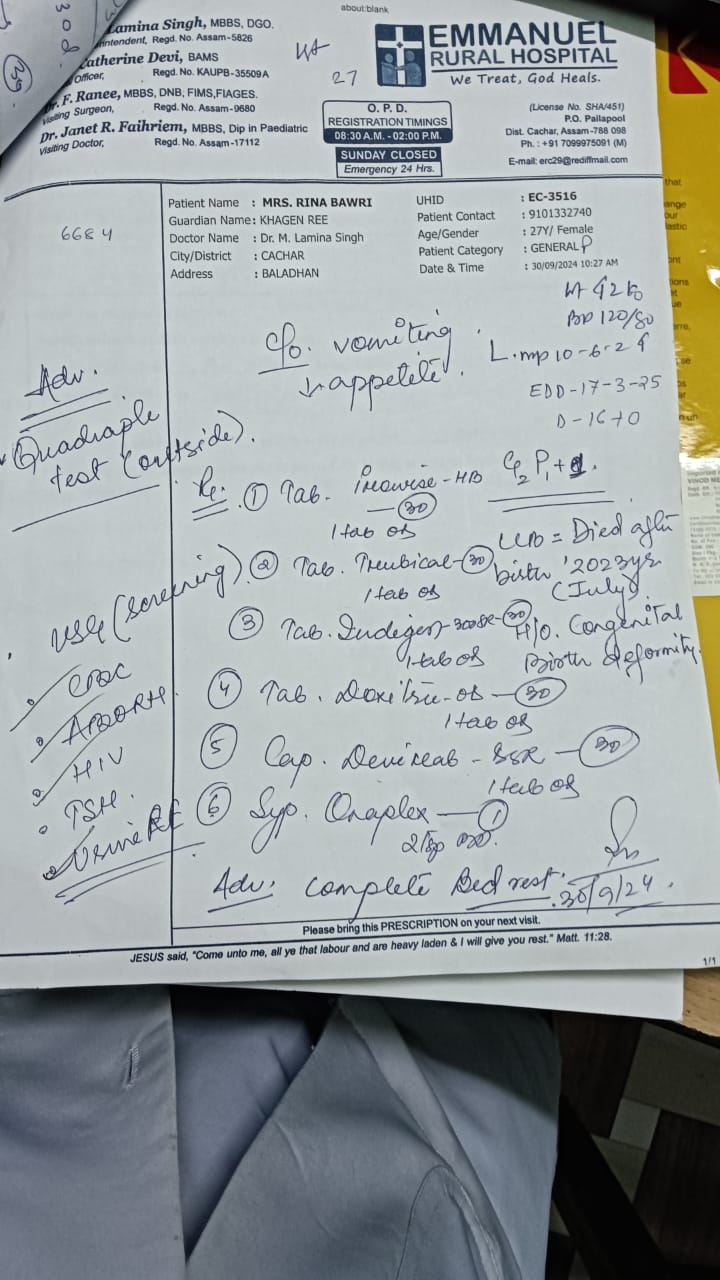 about:blank
Lamina Singh, MBBS, DGO.
Regd. No. Assam-5826
Catherine Devi, BAMS
Officer, Regd. No. KAUPB-35509A
F. Ranee, MBBS, DNB, FIMS, FIAGES.
Visiting Surgeon, Regd. No. Assam-9680
Dr. Janet R. Faihriem, MBBS, Dip in Paediatric
Visiting Doctor, Regd. No. Assam-17112
27
EMMANUEL
RURAL HOSPITAL
We Treat, God Heals.
O. P. D.
REGISTRATION TIMINGS
08:30 A.M. - 02:00 P.M.
SUNDAY CLOSED
Emergency 24 Hrs.
(License No. SHA/451)
P.O. Pailapool
Dist. Cachar, Assam-788 098
Ph. : +91 7099975091 (M)
E-mail: erc29@rediffmail.com
6684
Patient Name : MRS. RINA BAWRI
Guardian Name : KHAGEN REE
Doctor Name : Dr. M. Lamina Singh
City/District : CACHAR
Address : BALADHAN
UHID : EC-3516
Patient Contact : 9101332740
Age/Gender : 27Y/ Female
Patient Category : GENERAL P
Date & Time : 30/09/2024 10:27 AM
BP 120/80
L.mp 10-6-24
EDD-17-3-25
D-16+0
C/o. vomiting
↓ appetite.
Adv.
Quadraple
test (outside).
USG (screening)
CBC
ABORH
HIV
TSH.
Urine RE
G2 P1+
LCB = Died after
birth '2023yr
(July)
H/O. Congenital
Birth deformity.
Rx. ① Tab. -HB
30
1 tab od
② Tab. - 30
1 tab od
③ Tab. - 30
1 tab od
④ Tab. - 30
1 tab od
⑤ Cap. - 30
1 tab od
⑥ Syp. Oraplex - 1
Adv. Complete Bed rest.
30/9/24.
Please bring this PRESCRIPTION on your next visit.
JESUS said, "Come unto me, all ye that labour and are heavy laden & I will give you rest." Matt. 11:28.
1/1